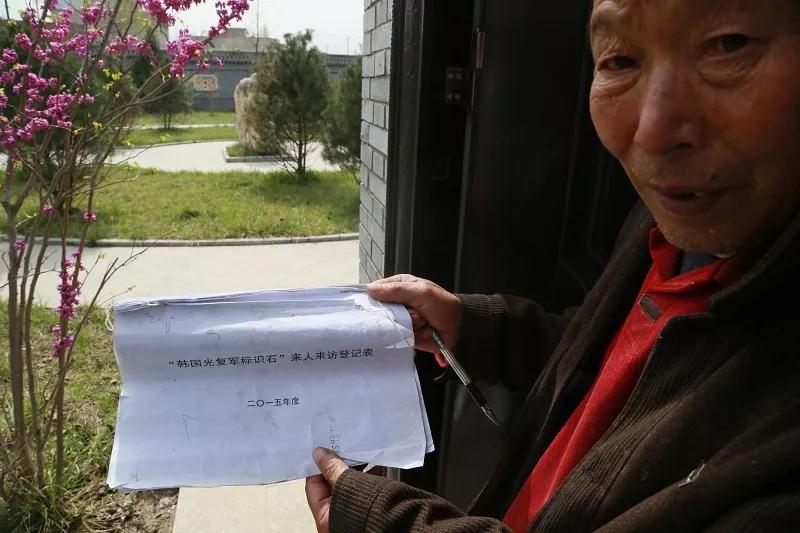 “韩国光复军标识石”来人来访登记表
二〇一五年度